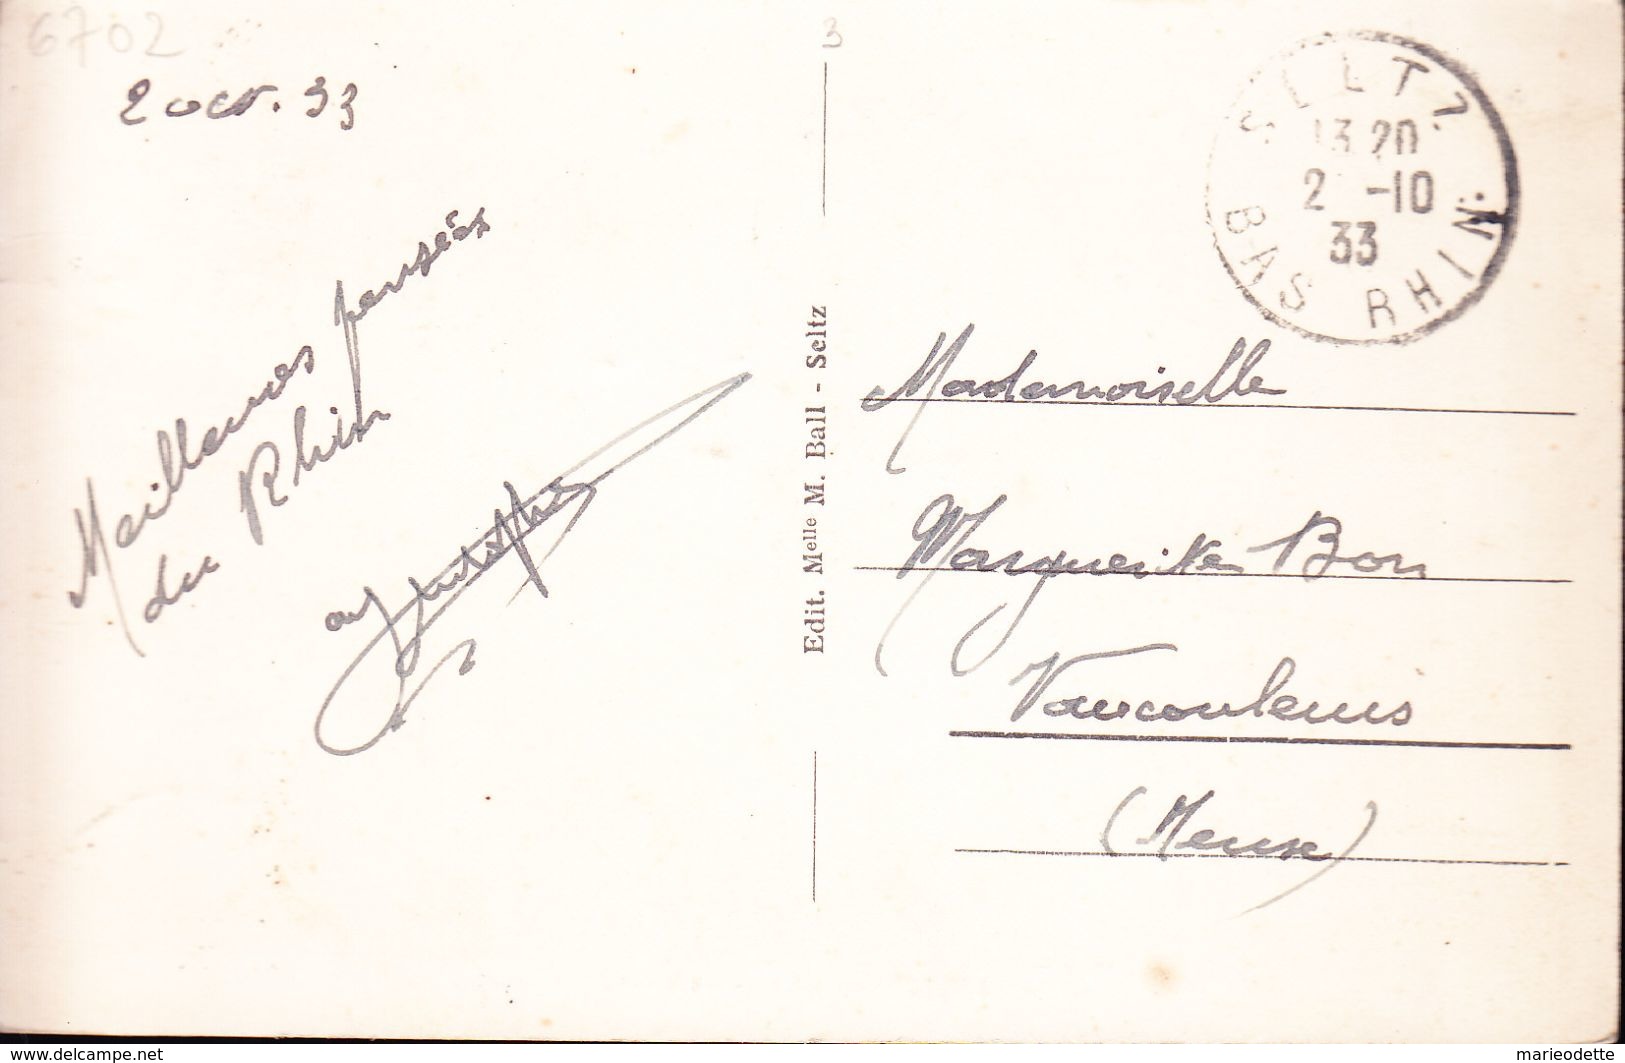 6702
2 oct. 33
Meilleures pensées
du Rhin
3
Edit. Melle M. Ball - Seltz
SELTZ
13 20
2 -10
33
BAS RHIN
Mademoiselle
Marguerite Bon
Vaucouleurs
(Meuse)
www.delcampe.net
marieodette